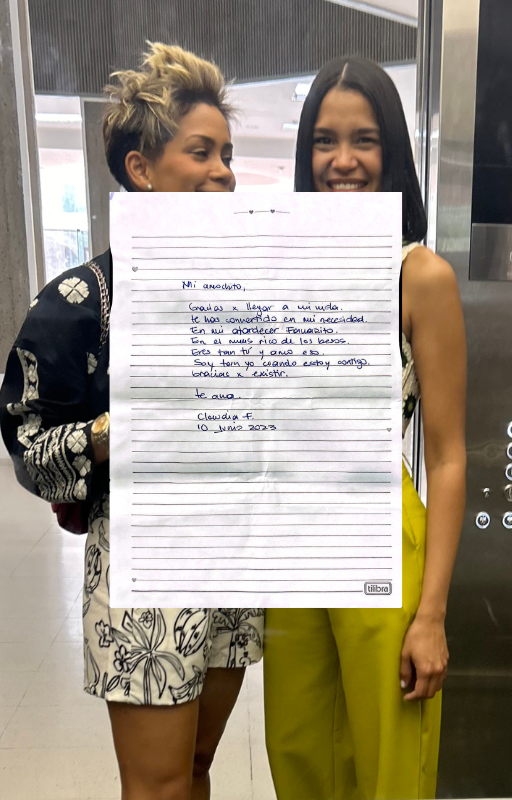 Mi amochito,
Gracias x llegar a mi vida.
te has convertido en mi necesidad.
En mi atardecer Favorito.
En el mas rico de los besos.
Eres tan tú y amo eso.
Soy tan yo cuando estoy contigo.
Gracias x existir.
te ama.
Claudia F.
10 Junio 2023
tilibra